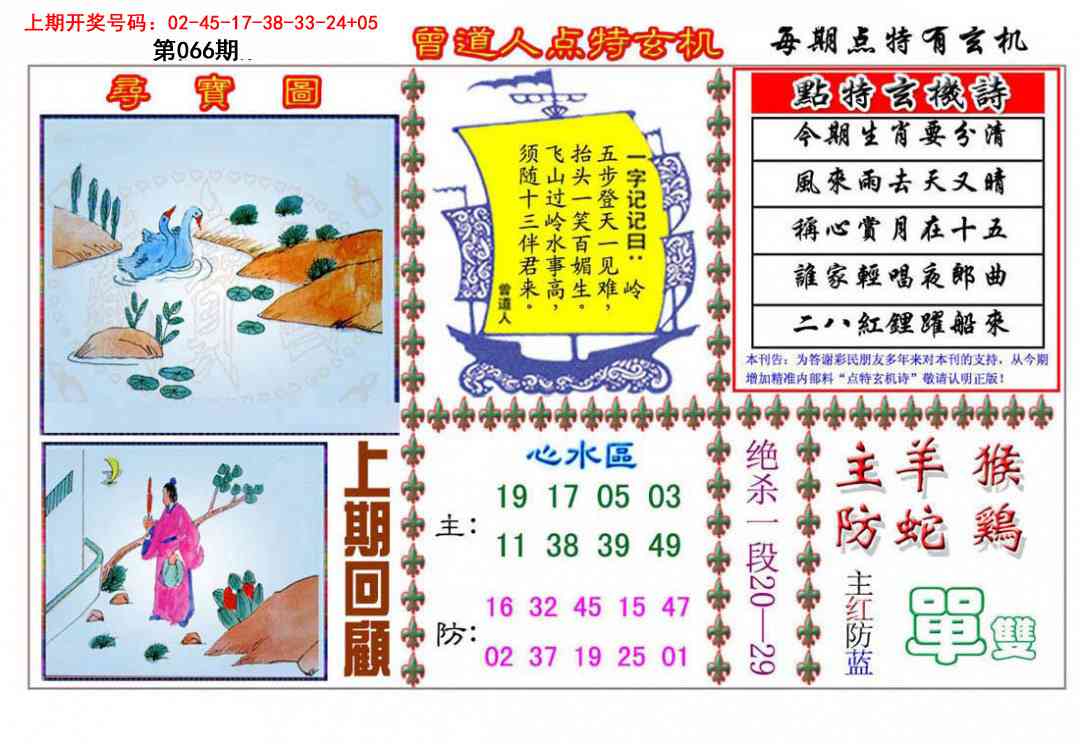 上期开奖号码：02-45-17-38-33-24+05
第066期
曾道人点特玄机
每期点特有玄机
尋寶圖
一字记记曰：岭
五步登天一见难，
抬头一笑百媚生。
飞山过岭水事高，
须随十三伴君来。
曾道人
點特玄機詩
今期生肖要分清
風來雨去天又晴
稱心賞月在十五
誰家輕唱夜郎曲
二八紅鯉躍船來
本刊告：为答谢彩民朋友多年来对本刊的支持，从今期
增加精准内部料“点特玄机诗”敬请认明正版！
上期回顧
心水區
主：
19 17 05 03
11 38 39 49
防：
16 32 45 15 47
02 37 19 25 01
绝杀一段20—29
主羊猴
防蛇鷄
主红防蓝
單雙